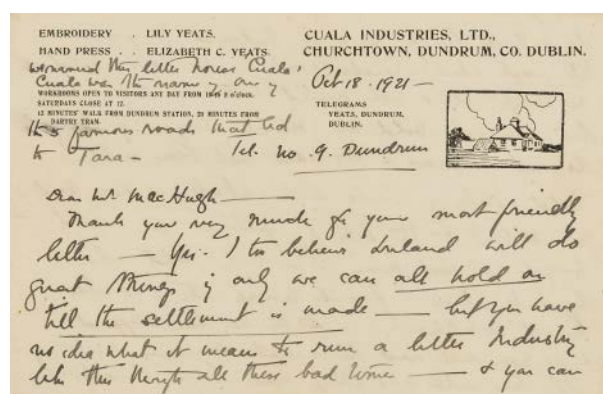 EMBROIDERY . LILY YEATS.
HAND PRESS . . ELIZABETH C. YEATS.
CUALA INDUSTRIES, LTD.,
CHURCHTOWN, DUNDRUM, CO. DUBLIN.
the little house Cuala'
Cuala was the name of one of
WORKROOMS OPEN TO VISITORS ANY DAY FROM 10 TO 5 o'clock.
SATURDAYS CLOSE AT 12.
12 MINUTES' WALK FROM DUNDRUM STATION, 20 MINUTES FROM
DARTRY TRAM.
the 5 famous roads that led
to Tara -
Oct 18 . 1921 -
TELEGRAMS
YEATS, DUNDRUM,
DUBLIN.
Tel. no. 9. Dundrum
Dear Mr MacHugh —
Thank you very much for your most friendly
letter — Yes. I too believe Ireland will do
great things if only we can all hold on
till the settlement is made — but you have
no idea what it means to run a little Industry
like this through all these bad times — & you can